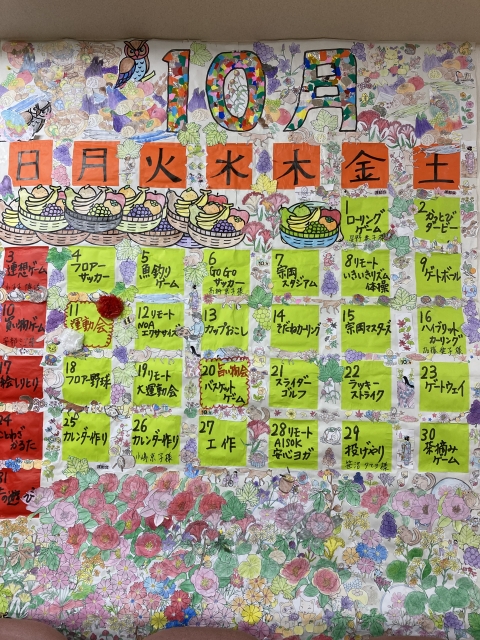 10月
日 月 火 水 木 金 土
1
ローリング
ゲーム
2
かっとび
ダービー
3
連想ゲーム
4
フロアー
サッカー
5
魚釣り
ゲーム
6
GoGo
サッカー
7
宗岡
スタジアム
8 リモート
いきいきリズム
体操
9
ゲートボール
10
買い物ゲーム
11
運動会
12 リモート
NOA
エクササイズ
13
カップおこし
14
そだねカーリング
15
宗岡マスターズ
16
ハイブリット
カーリング
17
絵しりとり
18
フロアー野球
19 リモート
大運動会
20 買い物
バスケット
ゲーム
21
スライダー
ゴルフ
22
ラッキー
ストライク
23
ゲートウェイ
24
ことわざ
かるた
25
カレンダー作り
26
カレンダー作り
27
工作
28 リモート
ALSOK
安心ヨガ
29
投げやり
30
本摘み
ゲーム
31